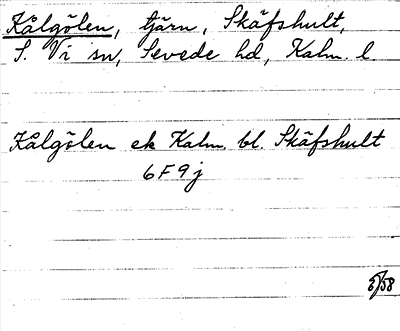 Kålgölen, tjärn, Skäfshult,
S. Vi sn, Sevede hd, Kalm. l.
Kålgölen ek Kalm. bl. Skäfshult
6F9j
5/58